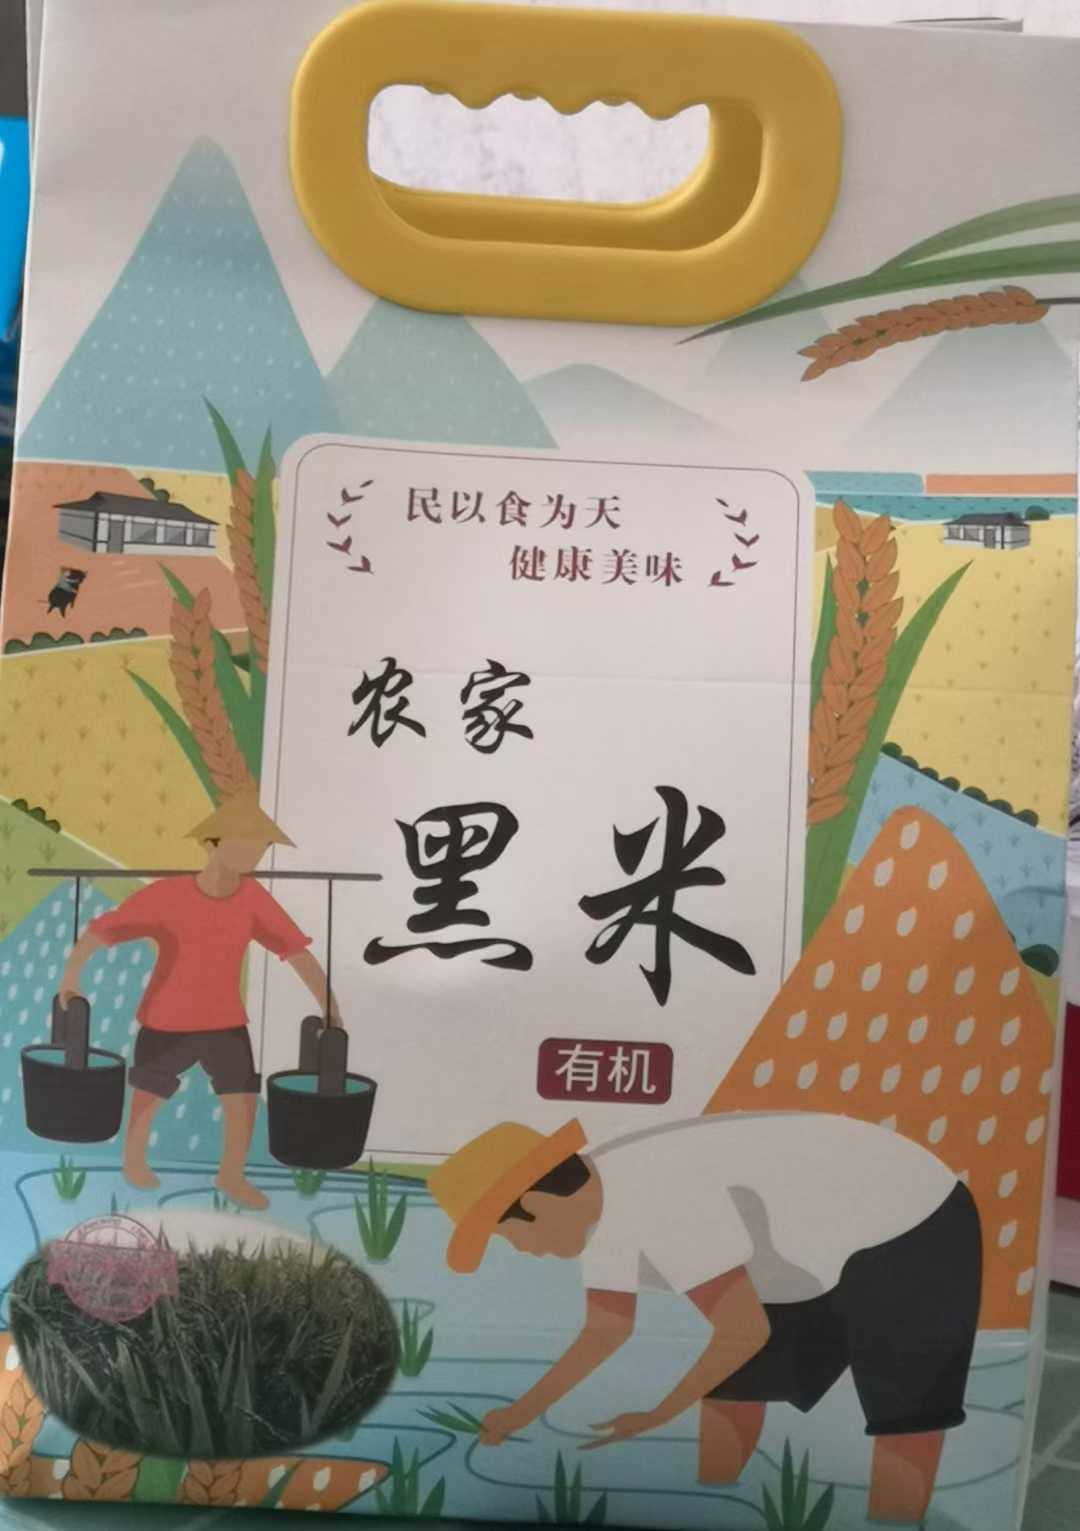 民以食为天
健康美味
农家
黑米
有机